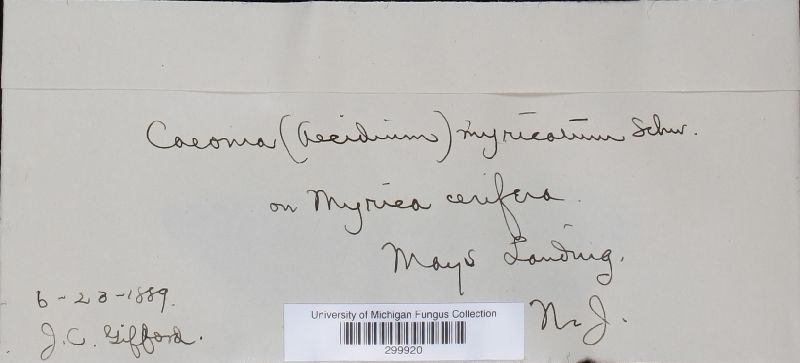 Caeoma (Aecidium) myricatum Schw.
on Myrica cerifera.
Mays Landing.
N. J.
6-23-1889.
J. C. Gifford.
University of Michigan Fungus Collection
299920